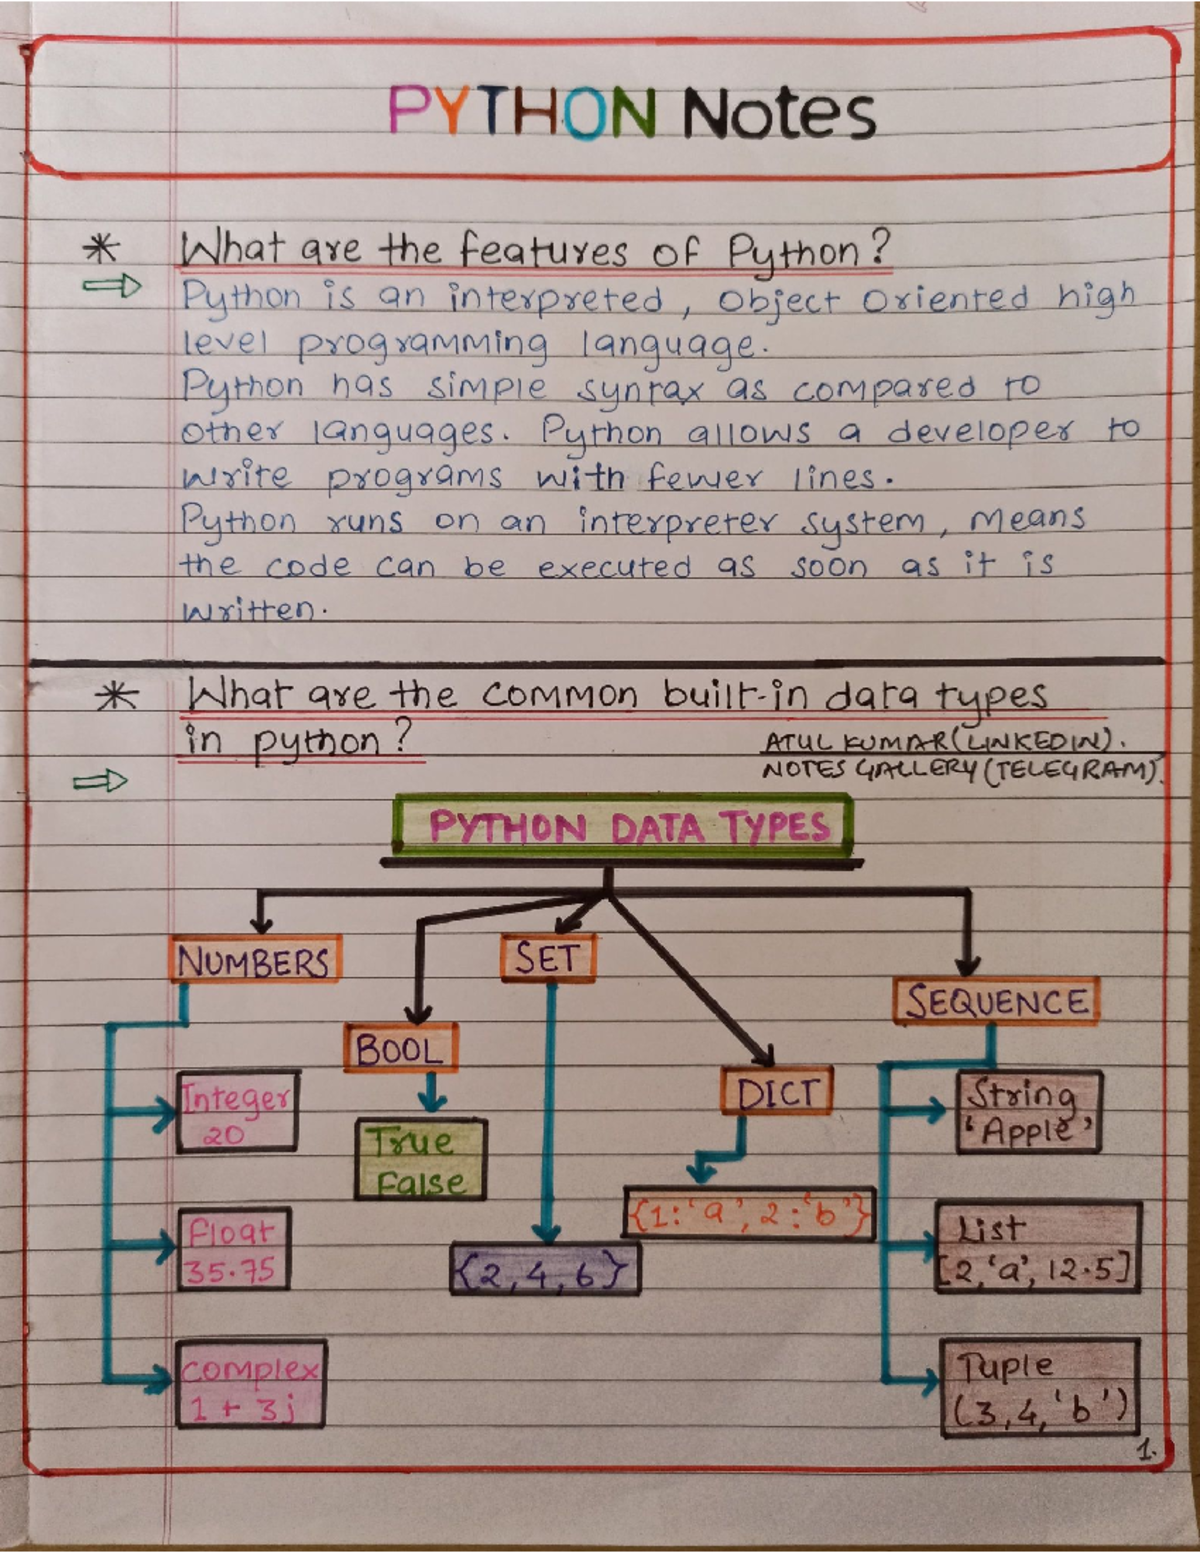 PYTHON Notes
* What are the features of Python?
⇒ Python is an interpreted, Object Oriented high
level programming language.
Python has simple syntax as compared to
other languages. Python allows a developer to
write programs with fewer lines.
Python runs on an interpreter system, means
the code can be executed as soon as it is
written.
* What are the common built-in data types
in python?
ATUL KUMAR (LINKEDIN).
NOTES GALLERY (TELEGRAM).
⇒
PYTHON DATA TYPES
NUMBERS
SET
SEQUENCE
BOOL
DICT
Integer
20
True
False
String
'Apple'
{1:'a', 2:'b'}
Float
35.75
{2,4,6}
List
[2,'a',12.5]
Complex
1 + 3j
Tuple
(3,4,'b')
1.